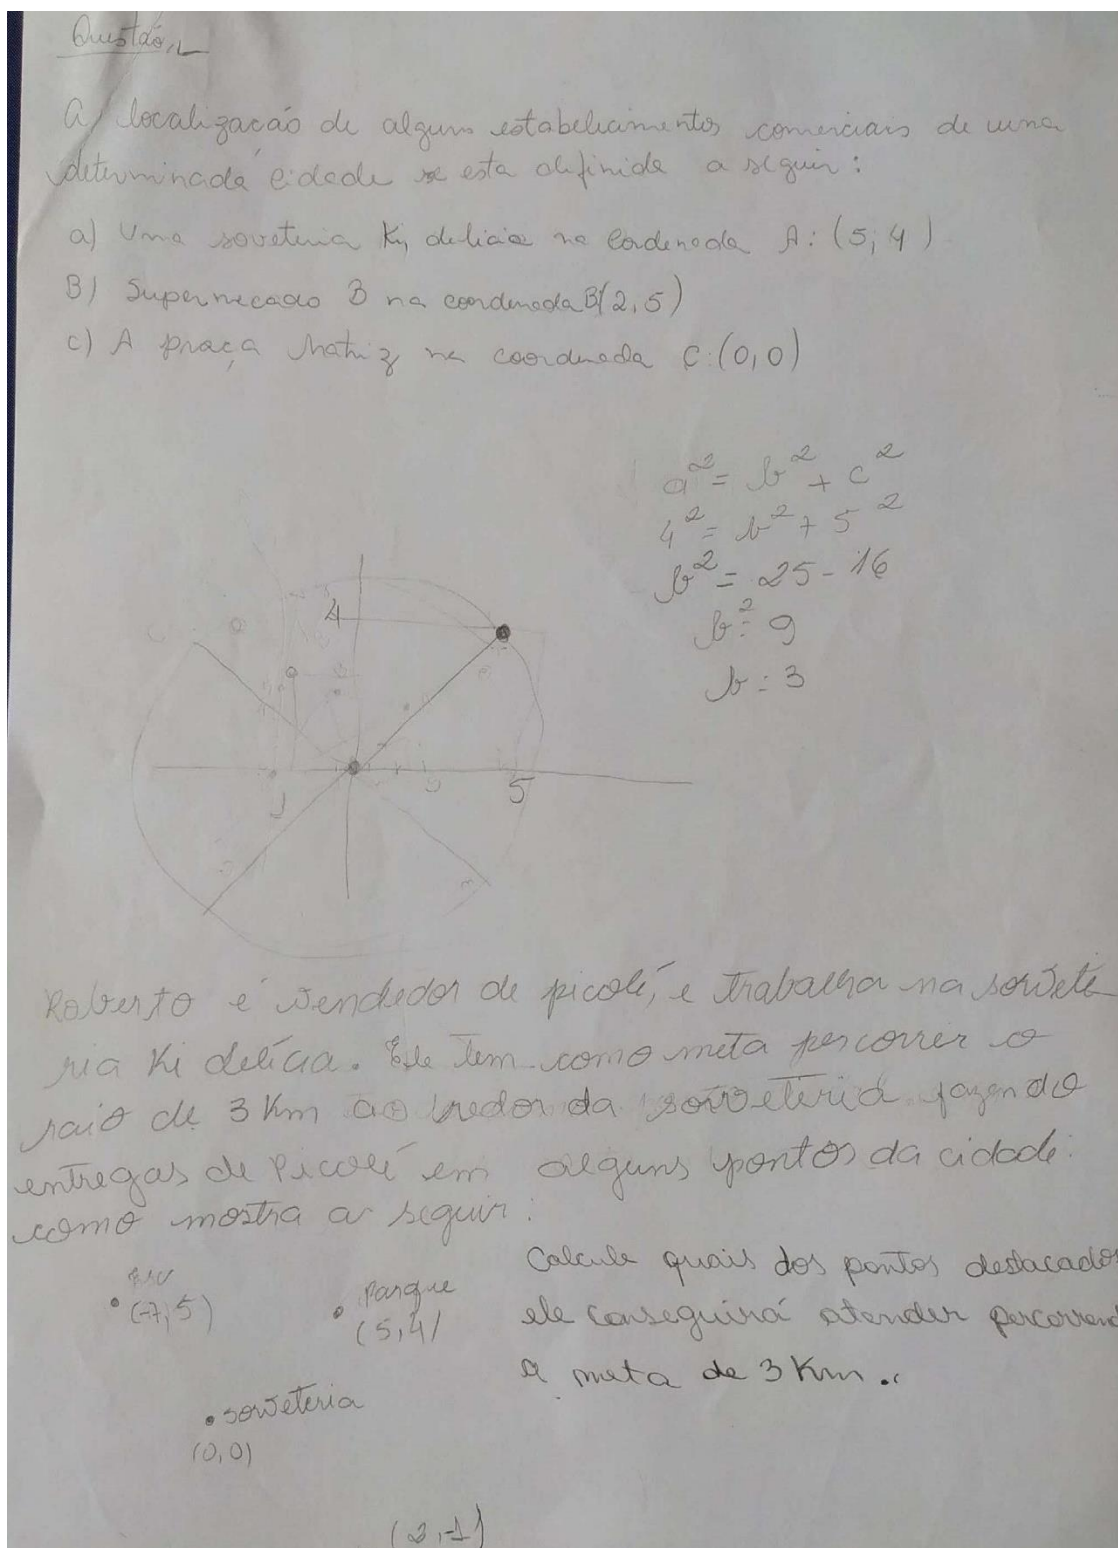 Questão 1
A localização de alguns estabeliciamentos comerciais de uma
determinada cidade se esta difinida a seguir:
a) Uma soveteria Ki delicia na Cordenada A: (5, 4)
B) Supermecado B na coordenada B(2, 5)
c) A praça Matriz na coordenada C: (0, 0)
a² = b² + c²
4² = b² + 5²
b² = 25 - 16
b² = 9
b = 3
4
5
Roberto é vendedor de picolé, e trabalha na sorvete
ria Ki delícia. Ele tem como meta percorrer o
raio de 3 Km ao redor da sorveteria fazendo
entregas de Picolé em alguns pontos da cidade.
como mostra a seguir:
(-7, 5)
Parque
(5, 4)
sorveteria
(0, 0)
Calcule quais dos pontos destacados
ele conseguirá atender percorrend
a meta de 3 Km.
(2, -1)